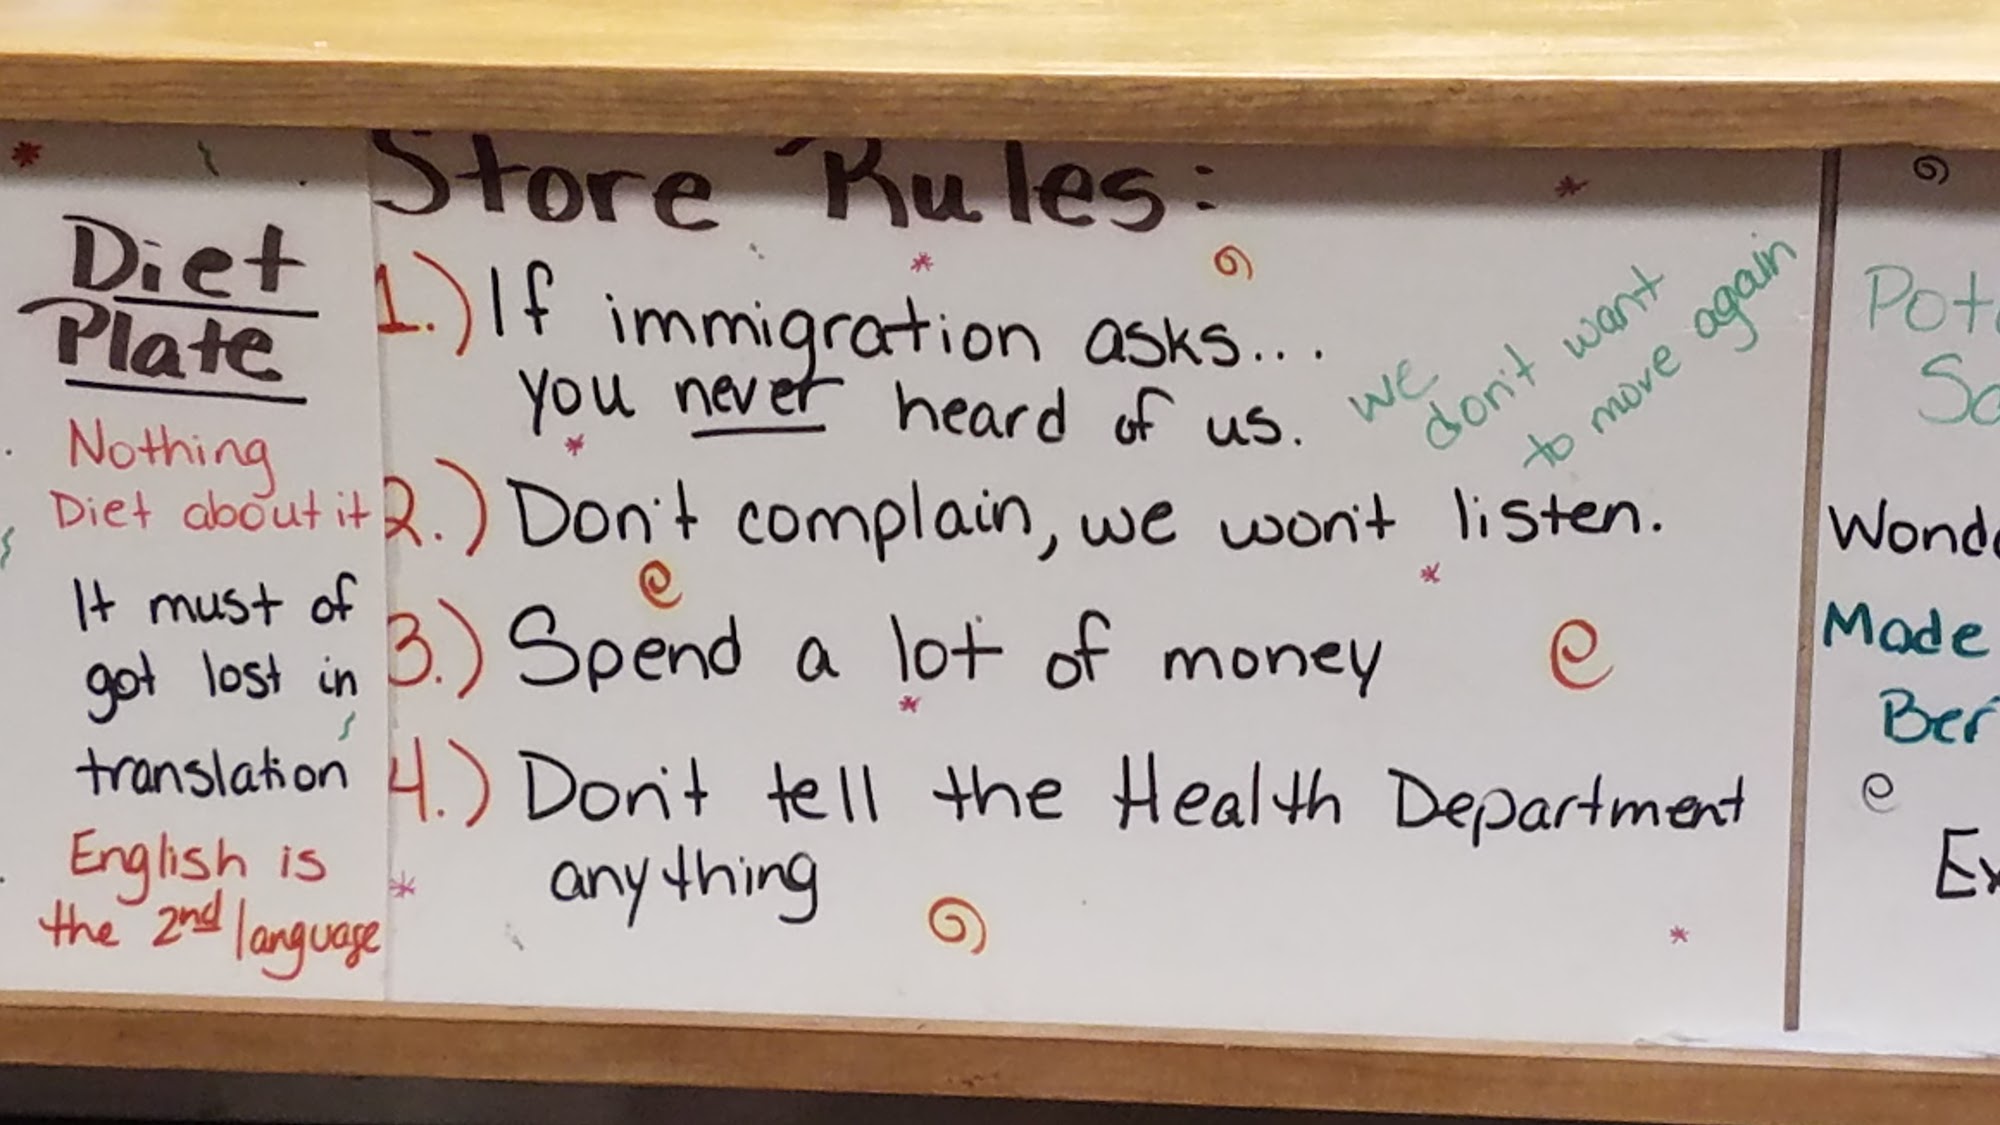 Diet
Plate
Nothing
Diet about it
It must of
got lost in
translation
English is
the 2nd language
Store Rules:
1.) If immigration asks...
you never heard of us.
we
don't want
to more again
2.) Don't complain, we won't listen.
3.) Spend a lot of money
4.) Don't tell the Health Department
anything
Made